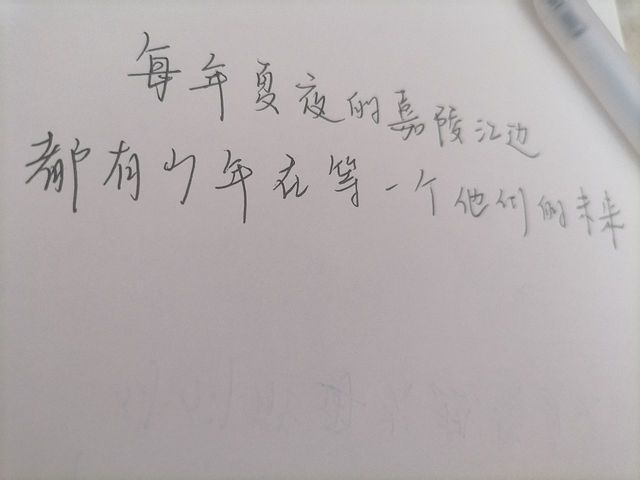 每年夏夜的嘉陵江边
都有少年在等一个他们的未来